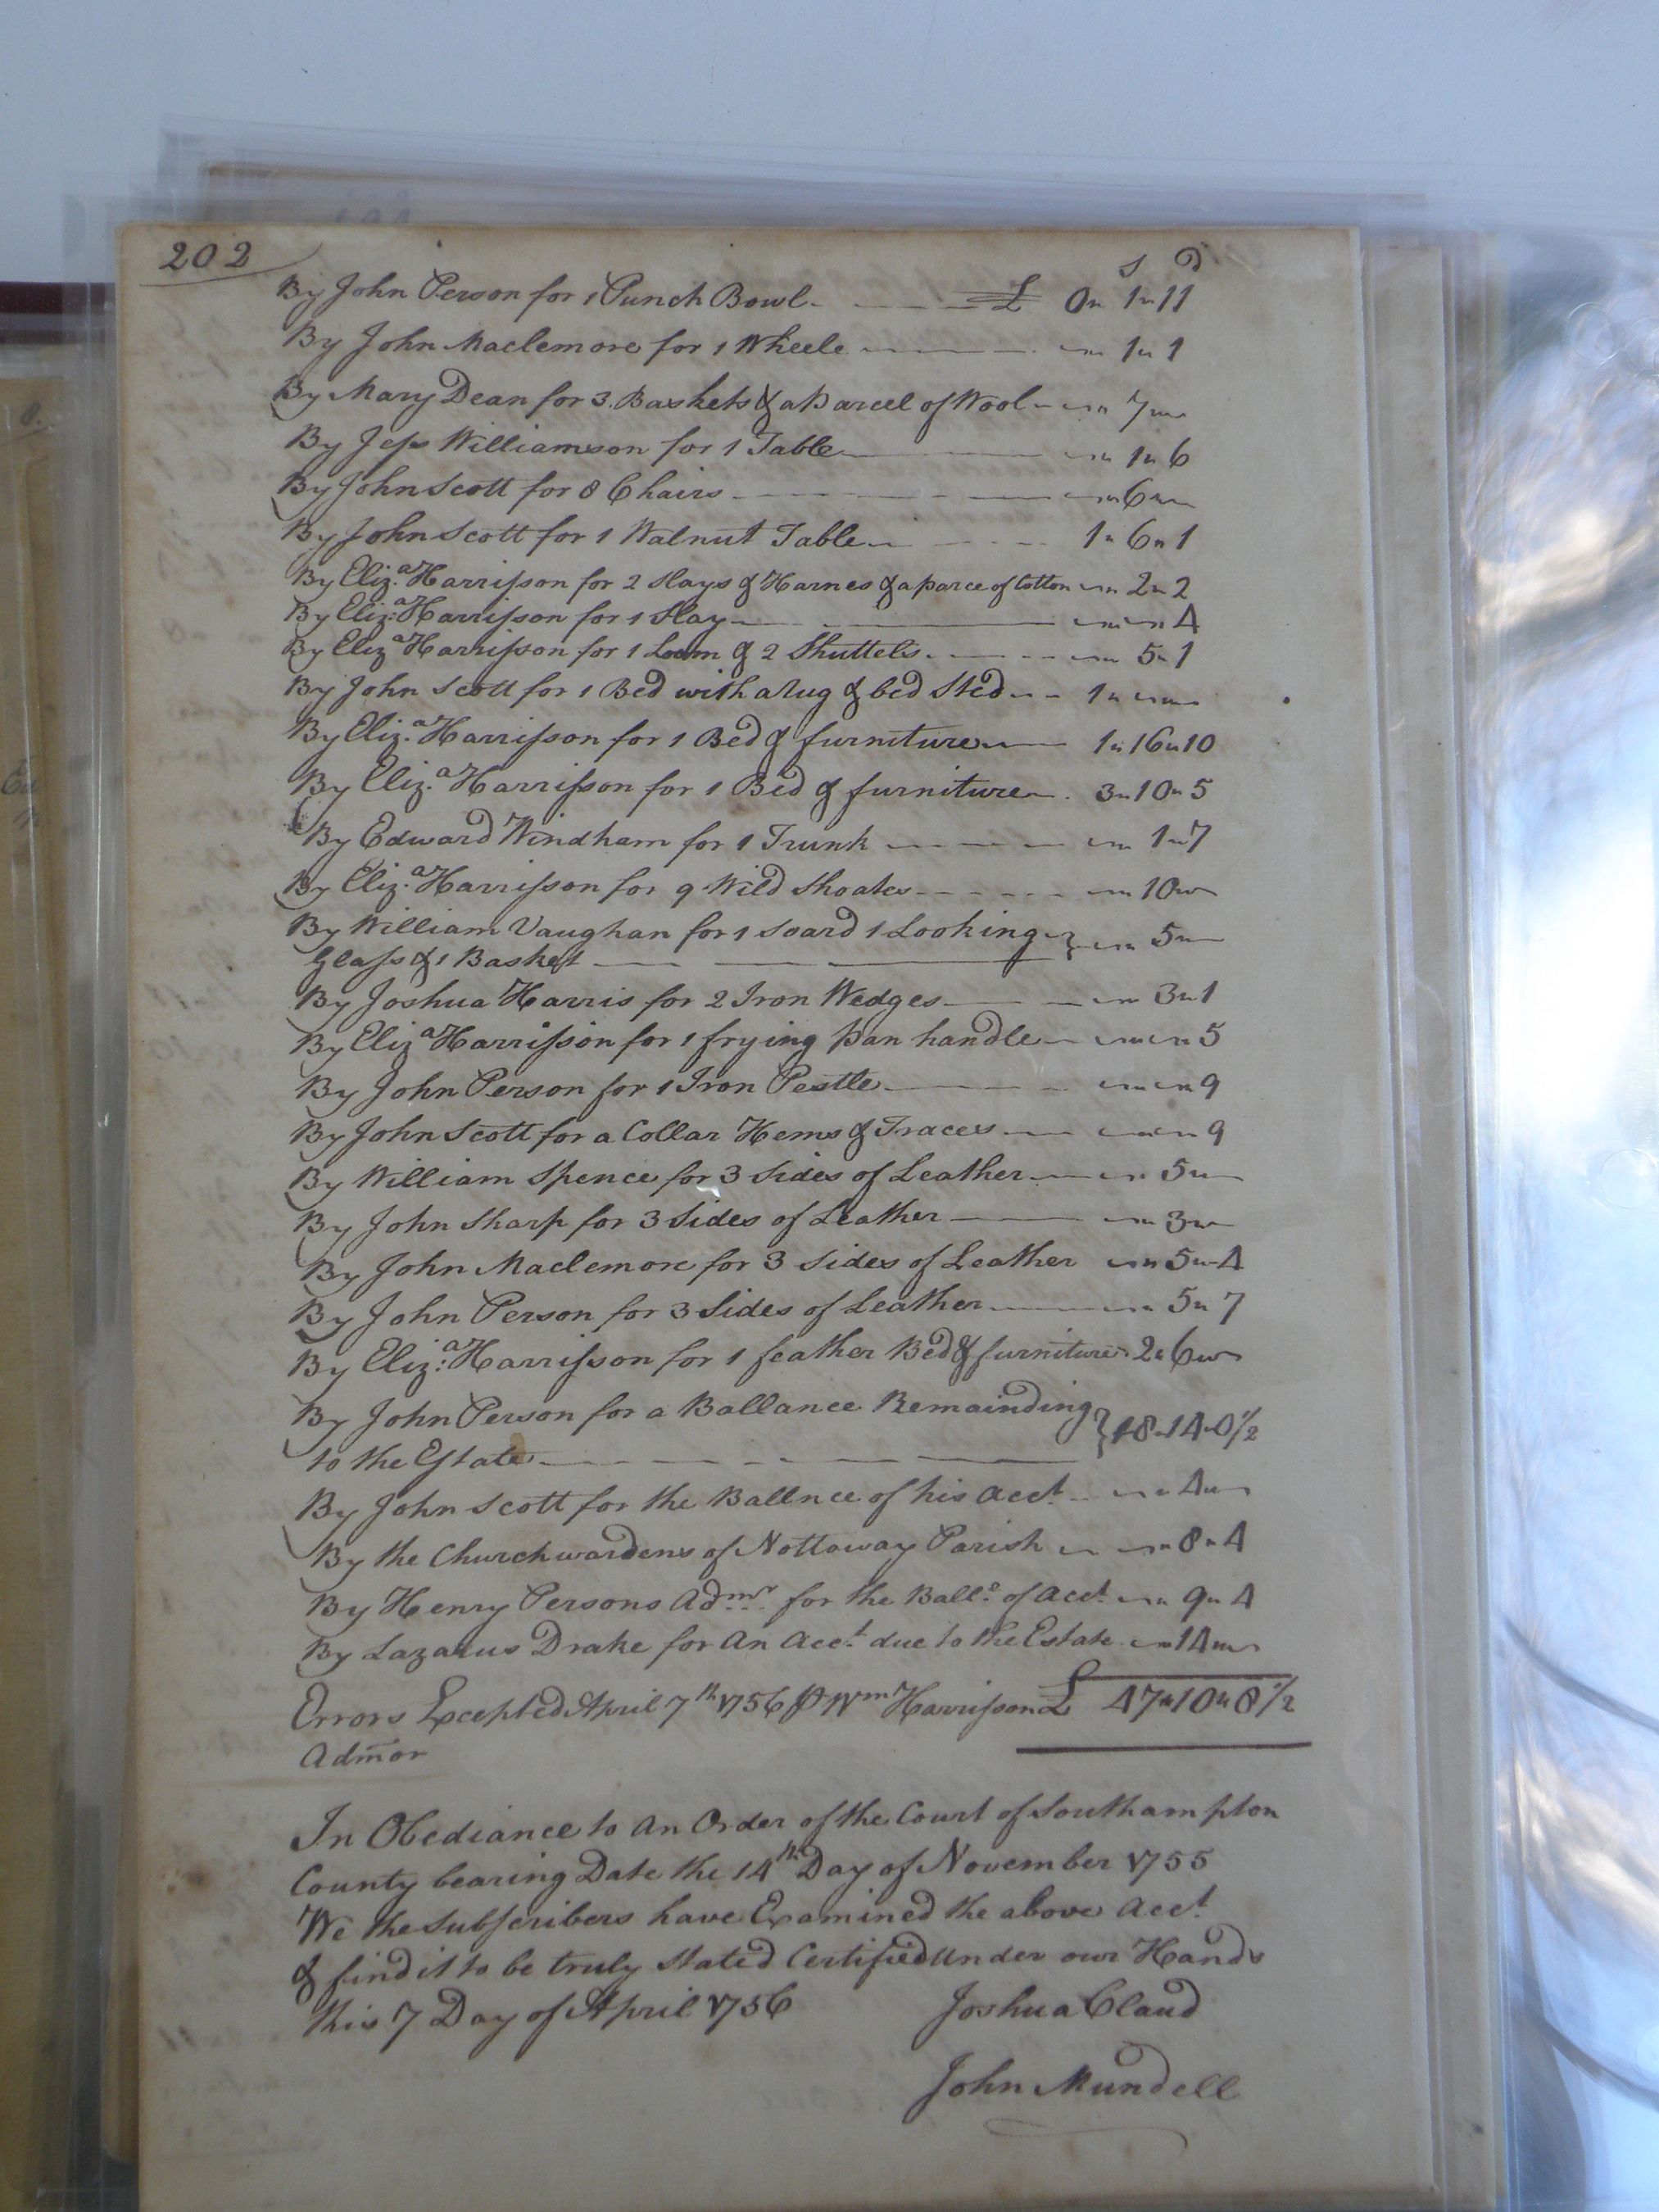 202
s d
By John Person for 1 Punch Bowl £ 0 " 1 " 11
By John Maclemore for 1 Wheele " 1 " 1
By Mary Dean for 3 Baskets & a parcel of Wool " 7 "
By Jeſs Williamson for 1 Table " 1 " 6
By John Scott for 8 Chairs " 6 "
By John Scott for 1 Walnut Table 1 " 6 " 1
By Eliz.a Harriſson for 2 Slays & Harnes & a parce of Cotton " 2 " 2
By Eliz.a Harriſson for 1 Slay " " 4
By Eliza Harriſson for 1 Loom & 2 Shuttels " 5 " 1
By John Scott for 1 Bed with a Rug & bed Sted 1 " "
By Eliz.a Harriſson for 1 Bed & furniture 1 " 16 " 10
By Eliz.a Harriſson for 1 Bed & furniture 3 " 10 " 5
By Edward Windham for 1 Trunk " 1 " 7
By Eliz.a Harriſson for 9 Wild Shoates " 10 "
By William Vaughan for 1 Soard 1 Looking } " 5 "
Glaſs & 1 Basket
By Joshua Harris for 2 Iron Wedges " 3 " 1
By Eliza Harriſson for 1 frying pan handle " " 5
By John Person for 1 Iron Pestle " " 9
By John Scott for a Collar Hems & Traces " " 9
By William Spence for 3 Sides of Leather " 5 "
By John Sharp for 3 Sides of Leather " 3 "
By John Maclemore for 3 Sides of Leather " 5 " 4
By John Person for 3 Sides of Leather " 5 " 7
By Eliz:a Harriſson for 1 feather Bed & furniture 2 " 6 "
By John Person for a Ballance Remainding } 18 " 14 " 0½
to the Eſtate
By John Scott for the Ballnce of his acct. " 4 "
By the Churchwardens of Nottoway Parish " 8 " 4
By Henry Persons Admr. for the Ball.e of acct. " 9 " 4
By Lazarus Drake for An Acc.t due to the Estate " 14 "
Errors Excepted April 7th 1756 ⅌ Wm Harriſson £ 47 " 10 " 8½
Adm̄or
In Obediance to An Order of the Court of Southampton
County bearing Date the 14th Day of November 1755
We the Subſcribers have Examined the above Acct.
& find it to be truly Stated Certified Under our Hands
this 7 Day of April 1756 Joshua Claud
John Mundell